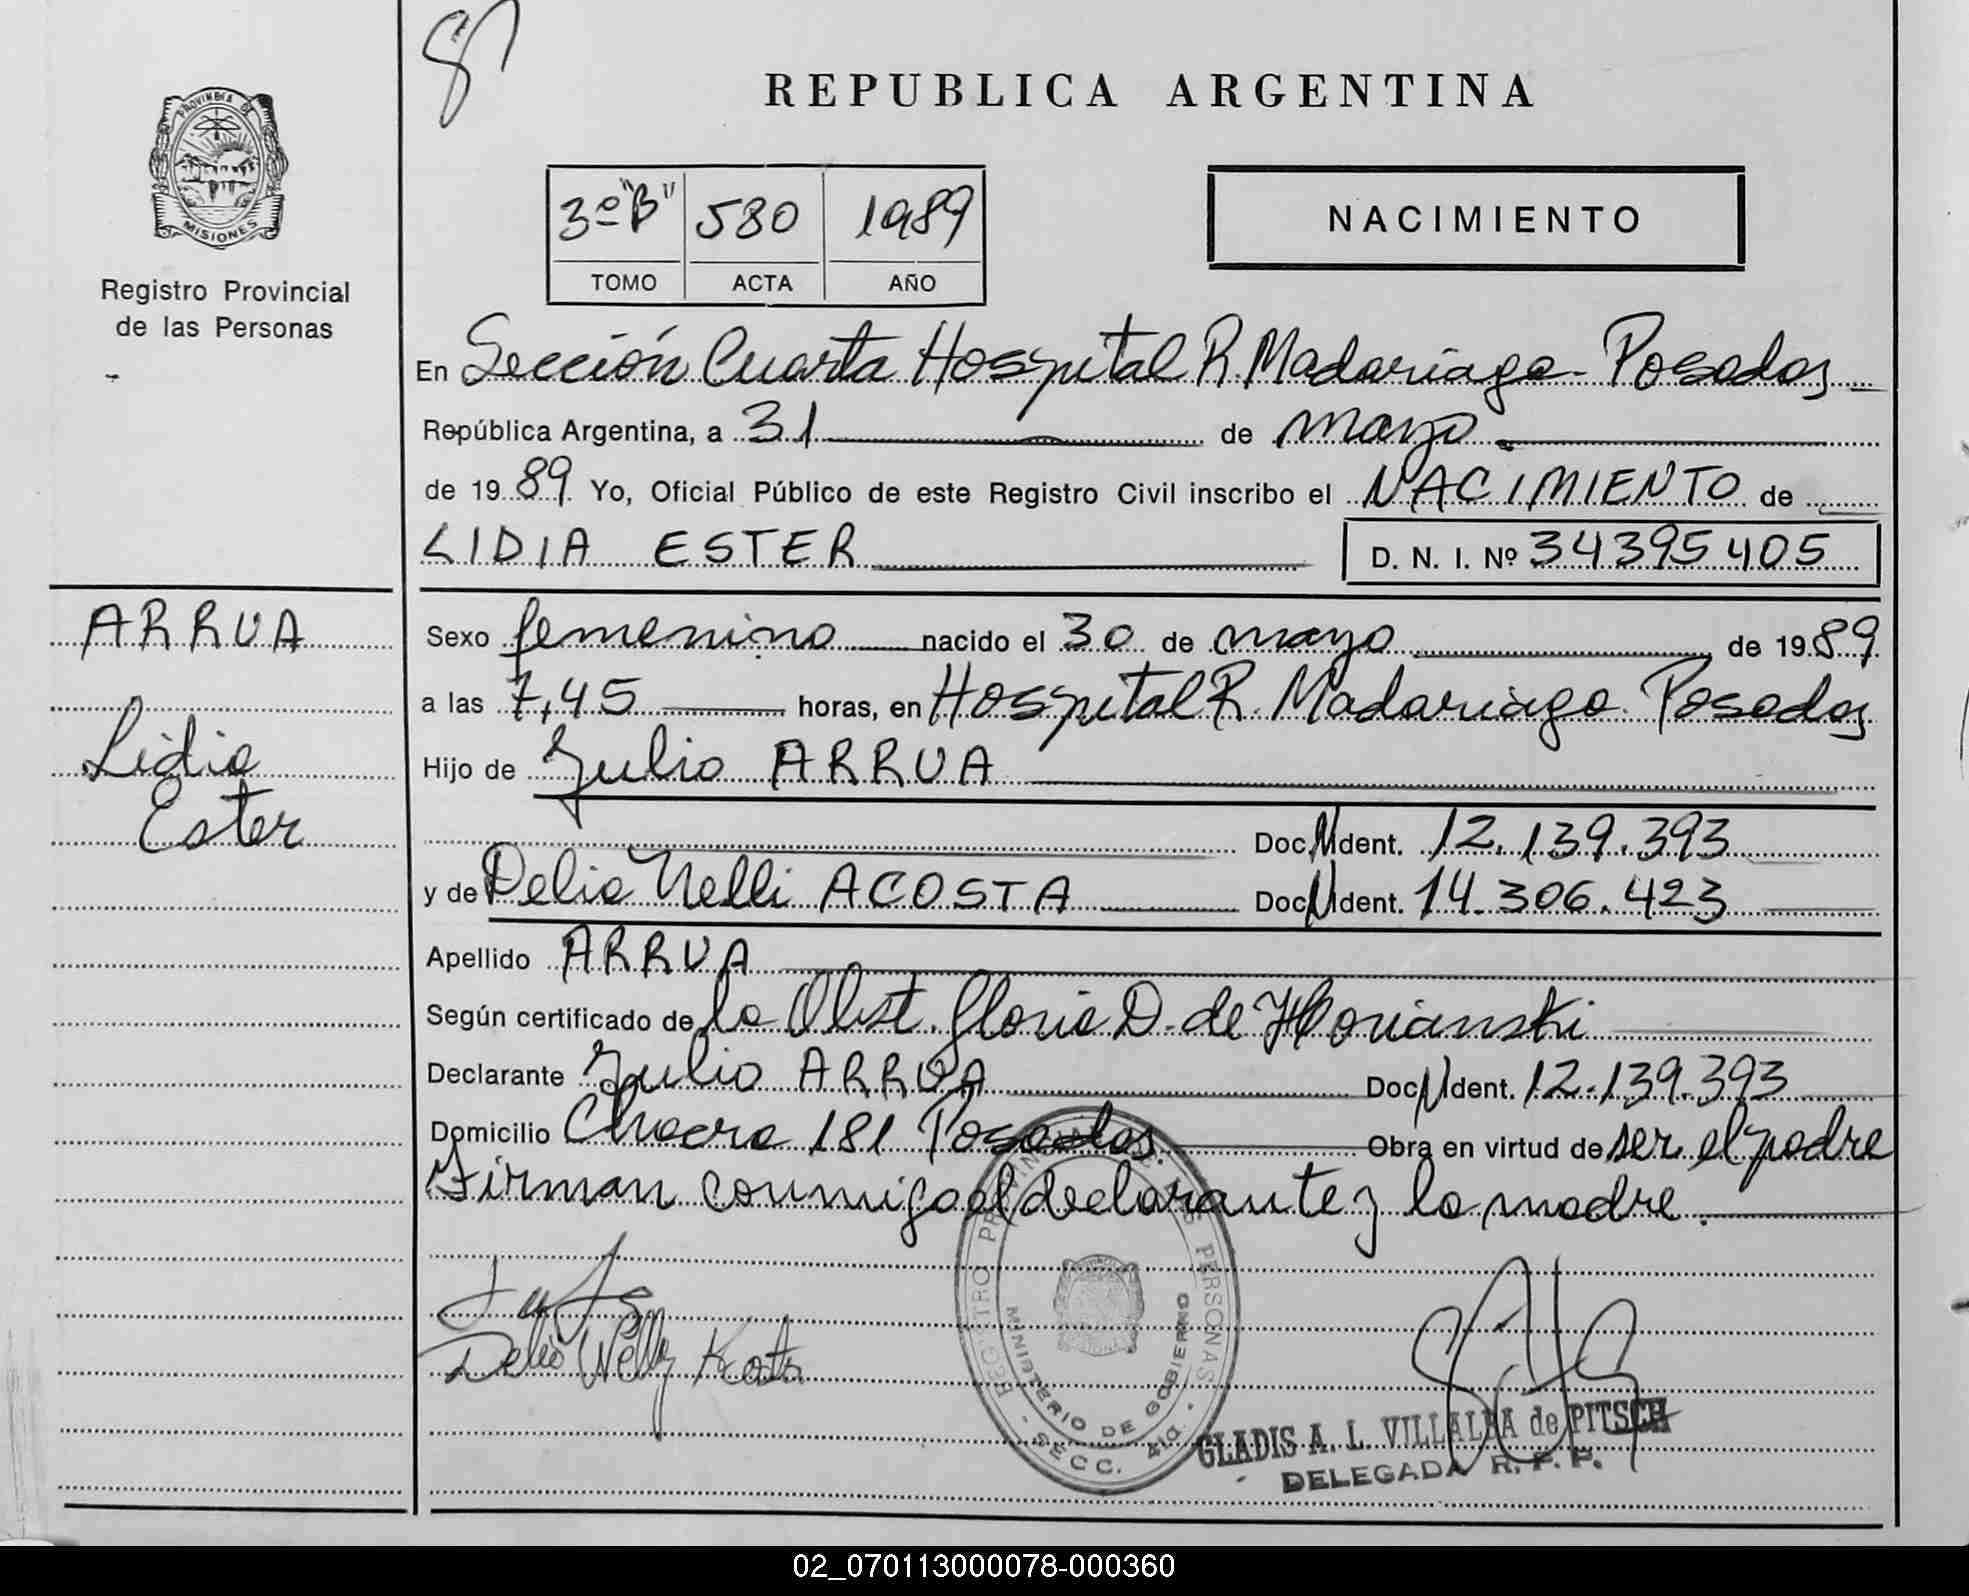 REPUBLICA ARGENTINA
PROVINCIA DE
MISIONES
Registro Provincial
de las Personas
3º "B" 580 1989
TOMO ACTA AÑO
NACIMIENTO
En Sección Cuarta Hospital R. Madariaga - Posadas
República Argentina, a 31 de mayo
de 19 89 Yo, Oficial Público de este Registro Civil inscribo el NACIMIENTO de
LIDIA ESTER D. N. I. Nº 34395405
ARRUA
Lidia
Ester
Sexo femenino nacido el 30 de mayo de 19 89
a las 7,45 horas, en Hospital R. Madariaga. Posadas
Hijo de Julio ARRUA
Doc. Ident. 12.139.393
y de Delia Nelli ACOSTA Doc. Ident. 14.306.423
Apellido ARRUA
Según certificado de la Obst. Gloria D. de
Declarante Julio ARRUA Doc. Ident. 12.139.393
Domicilio Chacra 181 Posadas. Obra en virtud de ser el padre
Firman conmigo el declarante y la madre.
Delia Nelly
REGISTRO PROVINCIAL DE LAS PERSONAS
MINISTERIO DE GOBIERNO
SECC. 4ta.
GLADIS A. L. VILLALBA de PITSCH
DELEGADA R. P. P.
02_070113000078-000360